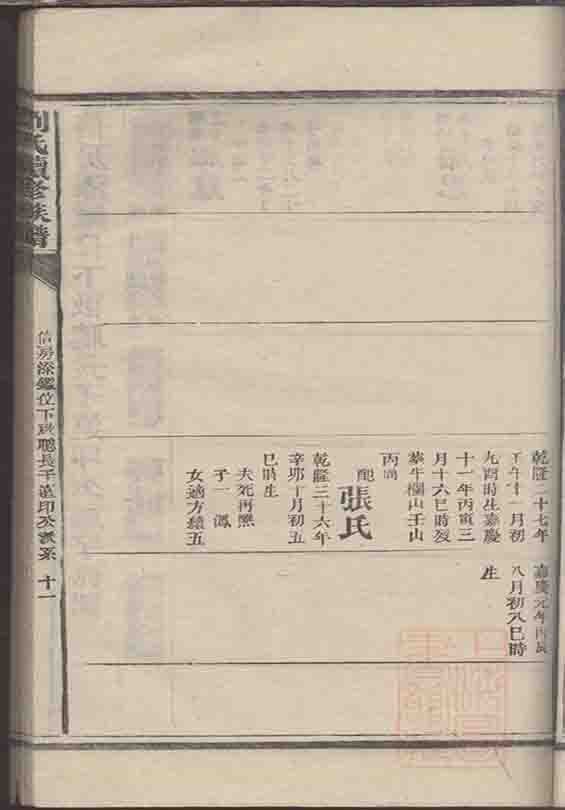 乾隆二十七年
壬午十一月初
九酉時生嘉慶
十一年丙寅三
月十六巳時歿
葬牛欄山壬山
丙向
配張氏
乾隆三十六年
辛卯十月初五
巳時生
夫死再醮
子一
女適方績五
嘉慶元年丙辰
八月初八巳時
生
劉氏續修族譜
信房添鑑位下
聰長子
印公派系 十一